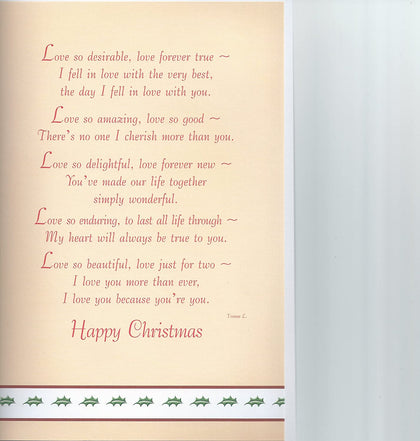 Love so desirable, love forever true ~
I fell in love with the very best,
the day I fell in love with you.
Love so amazing, love so good ~
There's no one I cherish more than you.
Love so delightful, love forever new ~
You've made our life together
simply wonderful.
Love so enduring, to last all life through ~
My heart will always be true to you.
Love so beautiful, love just for two ~
I love you more than ever,
I love you because you're you.
Happy Christmas